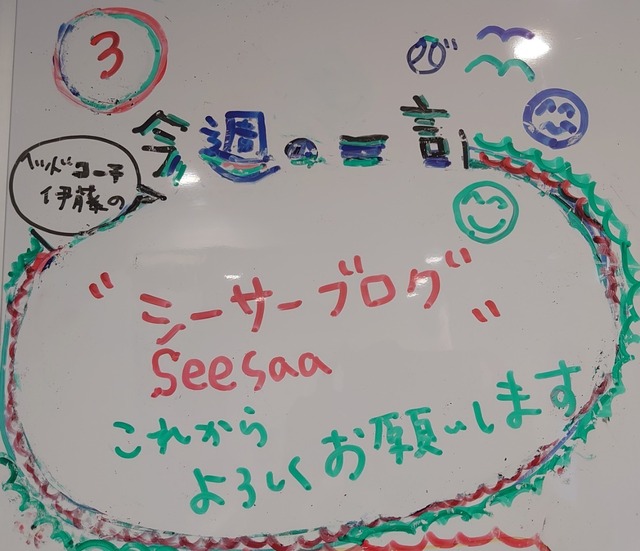 3
今週の一言
ヘッドコーチ
伊藤の
"シーサーブログ"
Seesaa "
これから
よろしくお願いします